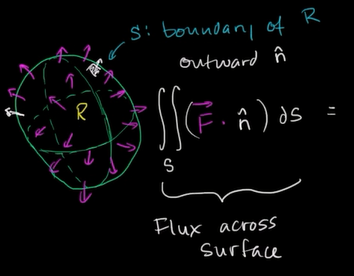 S: boundary of R
outward n̂
R
∬_S (F⃗ · n̂) dS =
n̂
Flux across
surface